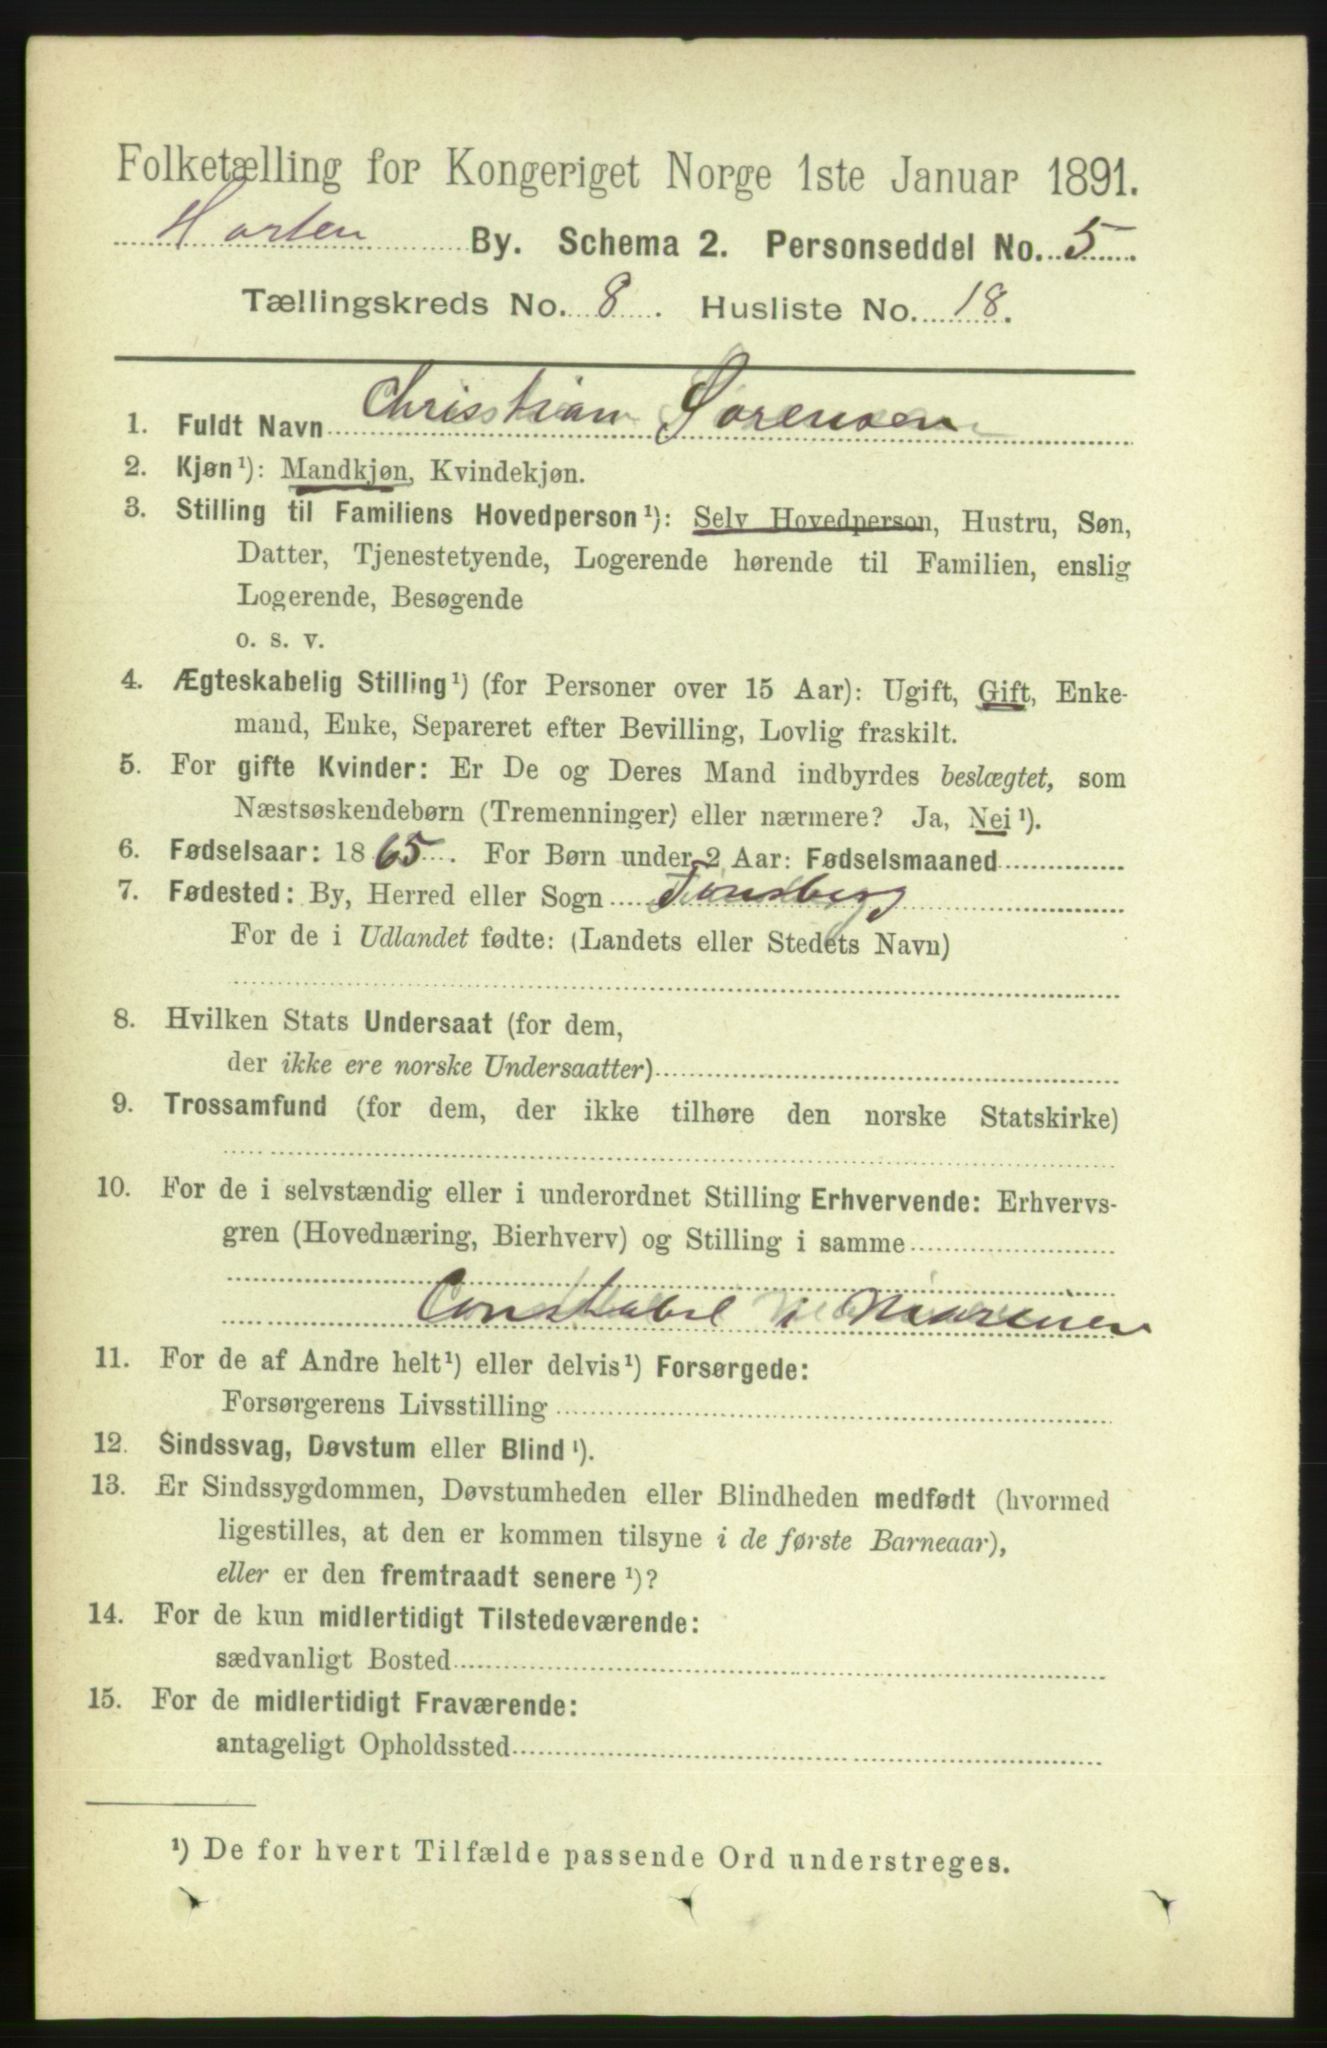 Folketælling for Kongeriget Norge 1ste Januar 1891.
Horten By. Schema 2. Personseddel No. 5
Tællingskreds No. 8. Husliste No. 18.
1. Fuldt Navn Christian Sorensen
2. Kjøn¹): Mandkjøn, Kvindekjøn.
3. Stilling til Familiens Hovedperson¹): Selv Hovedperson, Hustru, Søn,
Datter, Tjenestetyende, Logerende hørende til Familien, enslig
Logerende, Besøgende
o. s. v.
4. Ægteskabelig Stilling¹) (for Personer over 15 Aar): Ugift, Gift, Enke-
mand, Enke, Separeret efter Bevilling, Lovlig fraskilt.
5. For gifte Kvinder: Er De og Deres Mand indbyrdes beslægtet, som
Næstsøskendebørn (Tremenninger) eller nærmere? Ja, Nei¹).
6. Fødselsaar: 1865. For Børn under 2 Aar: Fødselsmaaned
7. Fødested: By, Herred eller Sogn Tønsberg
For de i Udlandet fødte: (Landets eller Stedets Navn)
8. Hvilken Stats Undersaat (for dem,
der ikke ere norske Undersaatter)
9. Trossamfund (for dem, der ikke tilhøre den norske Statskirke)
10. For de i selvstændig eller i underordnet Stilling Erhvervende: Erhvervs-
gren (Hovednæring, Bierhverv) og Stilling i samme
Constabel i Marinen
11. For de af Andre helt¹) eller delvis¹) Forsørgede:
Forsørgerens Livsstilling
12. Sindssvag, Døvstum eller Blind¹).
13. Er Sindssygdommen, Døvstumheden eller Blindheden medfødt (hvormed
ligestilles, at den er kommen tilsyne i de første Barneaar),
eller er den fremtraadt senere¹)?
14. For de kun midlertidigt Tilstedeværende:
sædvanligt Bosted
15. For de midlertidigt Fraværende:
antageligt Opholdssted
¹) De for hvert Tilfælde passende Ord understreges.